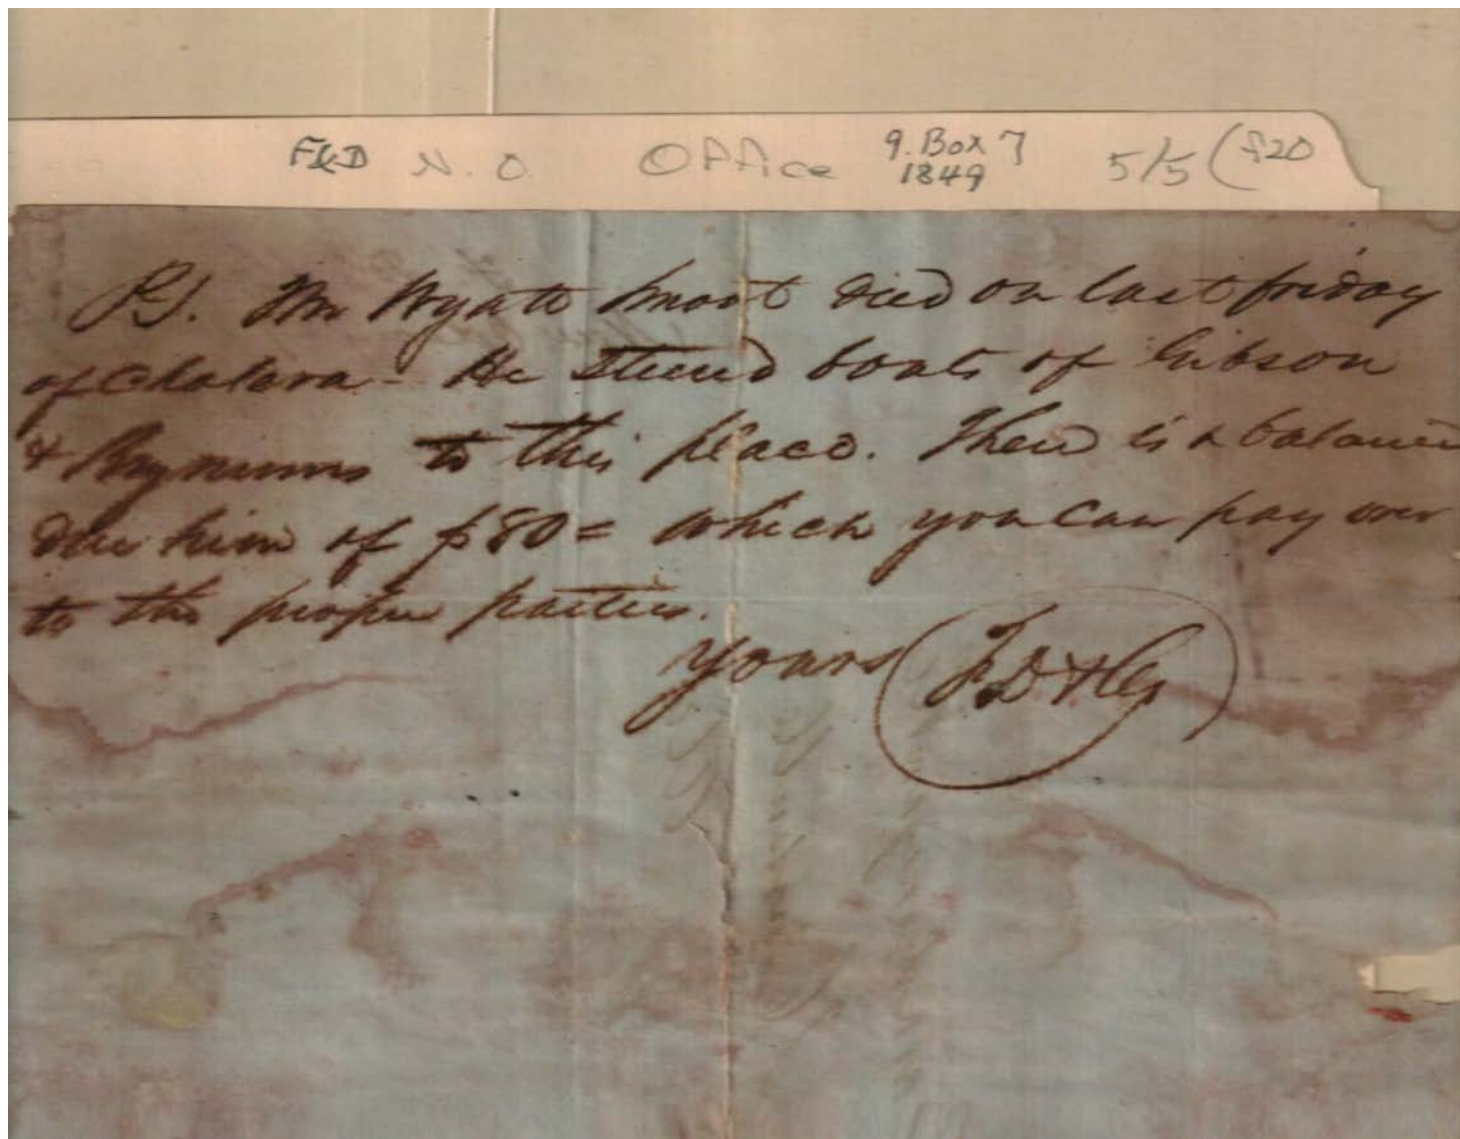 F&D N.O. Office 9. Box 7 5/5 (f20
1849
P.S. Mr Wyatt Smoot died on last friday
of cholera - He steered boats of Gibson
& Bynums to this place. There is a balance
due him of $80= which you can pay over
to the proper parties.
yours F D & Co